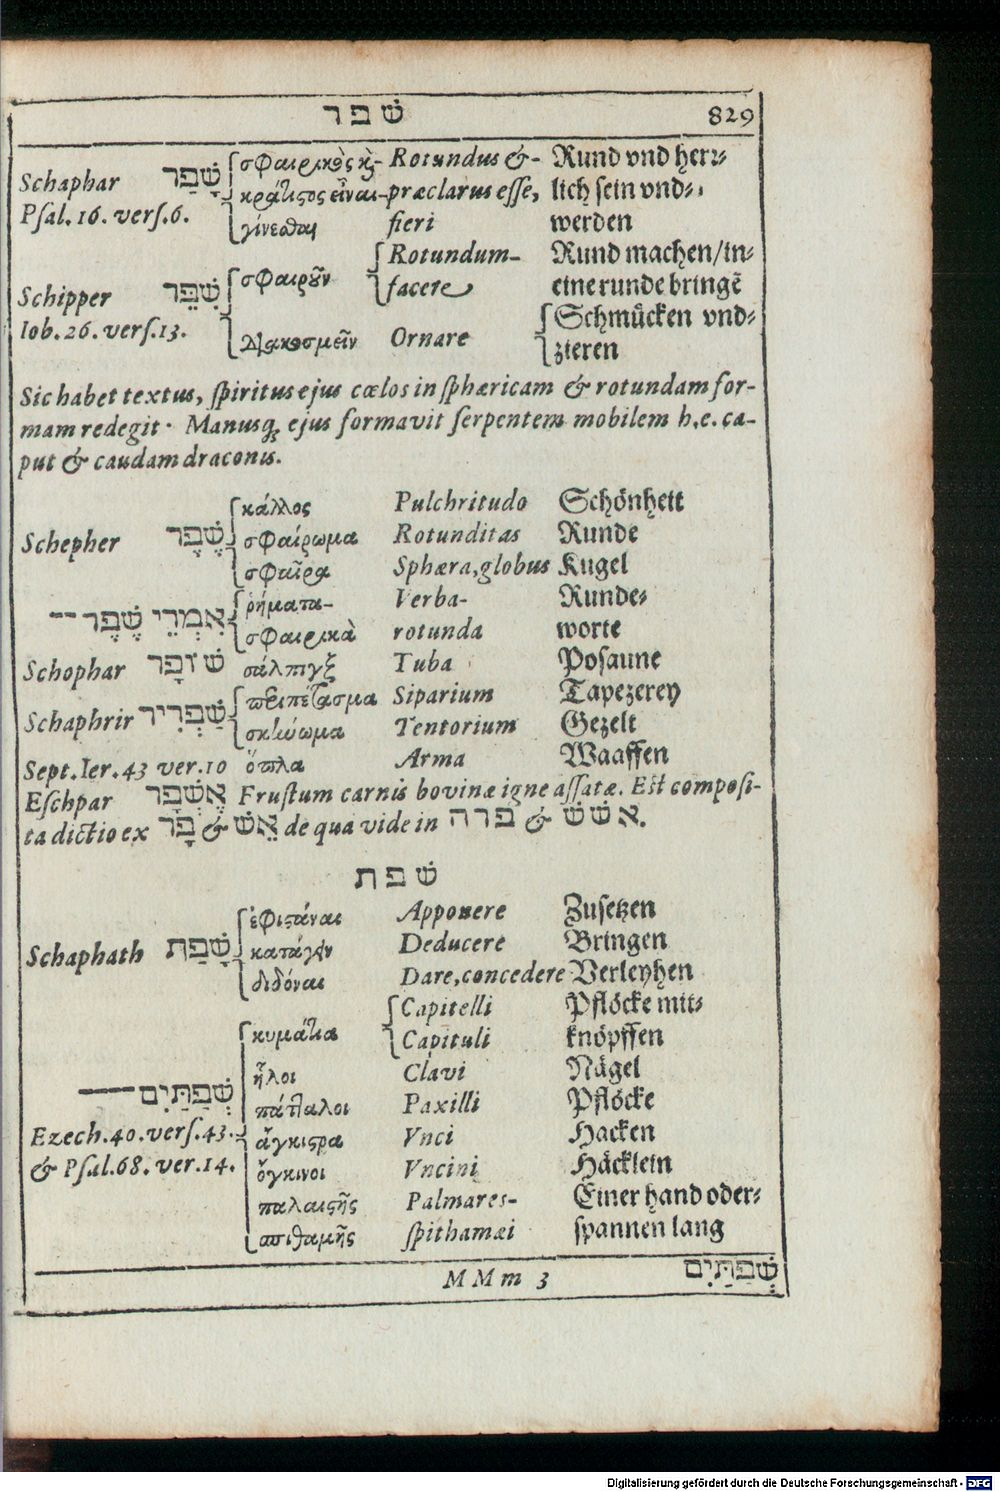 שׁפר 829
σφαιρικὸς κ̀ Rotundus &- Rund vnd herr-
Schaphar שָׁפַר κράτιστος εἶναι- præclarus esse, lich sein vnd-
Psal. 16. vers. 6. γίνεσθαι fieri werden
Rotundum- Rund machen/in-
Schipper שִׁפֵּר σφαιροῦν facere eine runde bringē
Iob. 26. vers. 13. Schmücken vnd-
διακοσμεῖν Ornare zieren
Sic habet textus, spiritus ejus cœlos in sphæricam & rotundam for-
mam redegit. Manusq; ejus formavit serpentem mobilem h.e. ca-
put & caudam draconis.
κάλλος Pulchritudo Schönheit
Schepher שֶׁפֶר σφαίρωμα Rotunditas Runde
σφαῖρα Sphæra, globus Kugel
ῥήματα- Verba- Runde-
אִמְרֵי שֶׁפֶר -- σφαιρικὰ rotunda worte
Schophar שׁוֹפָר σάλπιγξ Tuba Posaune
περιπέτασμα Siparium Tapezerey
Schaphrir שַׁפְרִיר σκήνωμα Tentorium Gezelt
Sept. Ier. 43 ver. 10 ὅπλα Arma Waaffen
Eschpar אֶשְׁפָּר Frustum carnis bovinæ igne assatæ. Est composi-
ta dictio ex אֵשׁ & פָּר de qua vide in פרה & אשׁשׁ.
שׁפת
ἐφιστάναι Apponere Zusetzen
Schaphath שָׁפַת κατάγειν Deducere Bringen
διδόναι Dare, concedere Verleyhen
Capitelli Pflöcke mit-
κυμάτια Capituli knöpffen
ἧλοι Clavi Nägel
שְׁפַתַּיִם — πάτταλοι Paxilli Pflöcke
Ezech. 40. vers. 43. ἄγκιστρα Vnci Hacken
& Psal. 68. ver. 14. ὄγκινοι Vncini Häcklein
παλαιστῆς Palmares- Einer hand oder-
σπιθαμῆς spithamæi spannen lang
MMm 3 שְׁפַתַּיִם
Digitalisierung gefördert durch die Deutsche Forschungsgemeinschaft - DFG